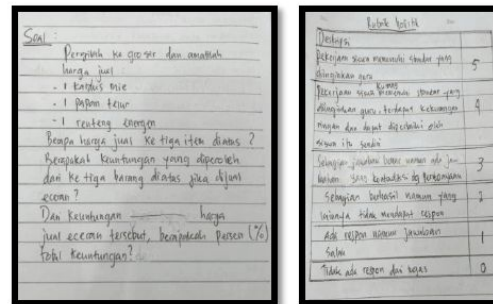 Soal :
Pergilah ke grosir dan amatilah
harga jual
- 1 kardus mie
- 1 papan telur
- 1 renteng energen
Berapa harga jual ketiga item diatas ?
Berapakah keuntungan yang diperoleh
dari ketiga barang diatas jika dijual
eceran ?
Dan keuntungan harga
jual eceran tersebut, berapakah persen (%)
total keuntungan?
Rubrik holistik
Deskripsi
Pekerjaan siswa memenuhi standar yang
diinginkan guru
5
Pekerjaan siswa kurang memenuhi standar yang
diinginkan guru, terdapat kekurangan
ringan dan dapat diperbaiki oleh
siswa itu sendiri
4
Sebagian jawaban benar namun ada
yang kontradiksi dg pertanyaan
3
Sebagian berhasil namun yang
lainnya tidak mendapat respon
2
Ada respon namun jawaban
salah
1
Tidak ada respon dari tugas
0